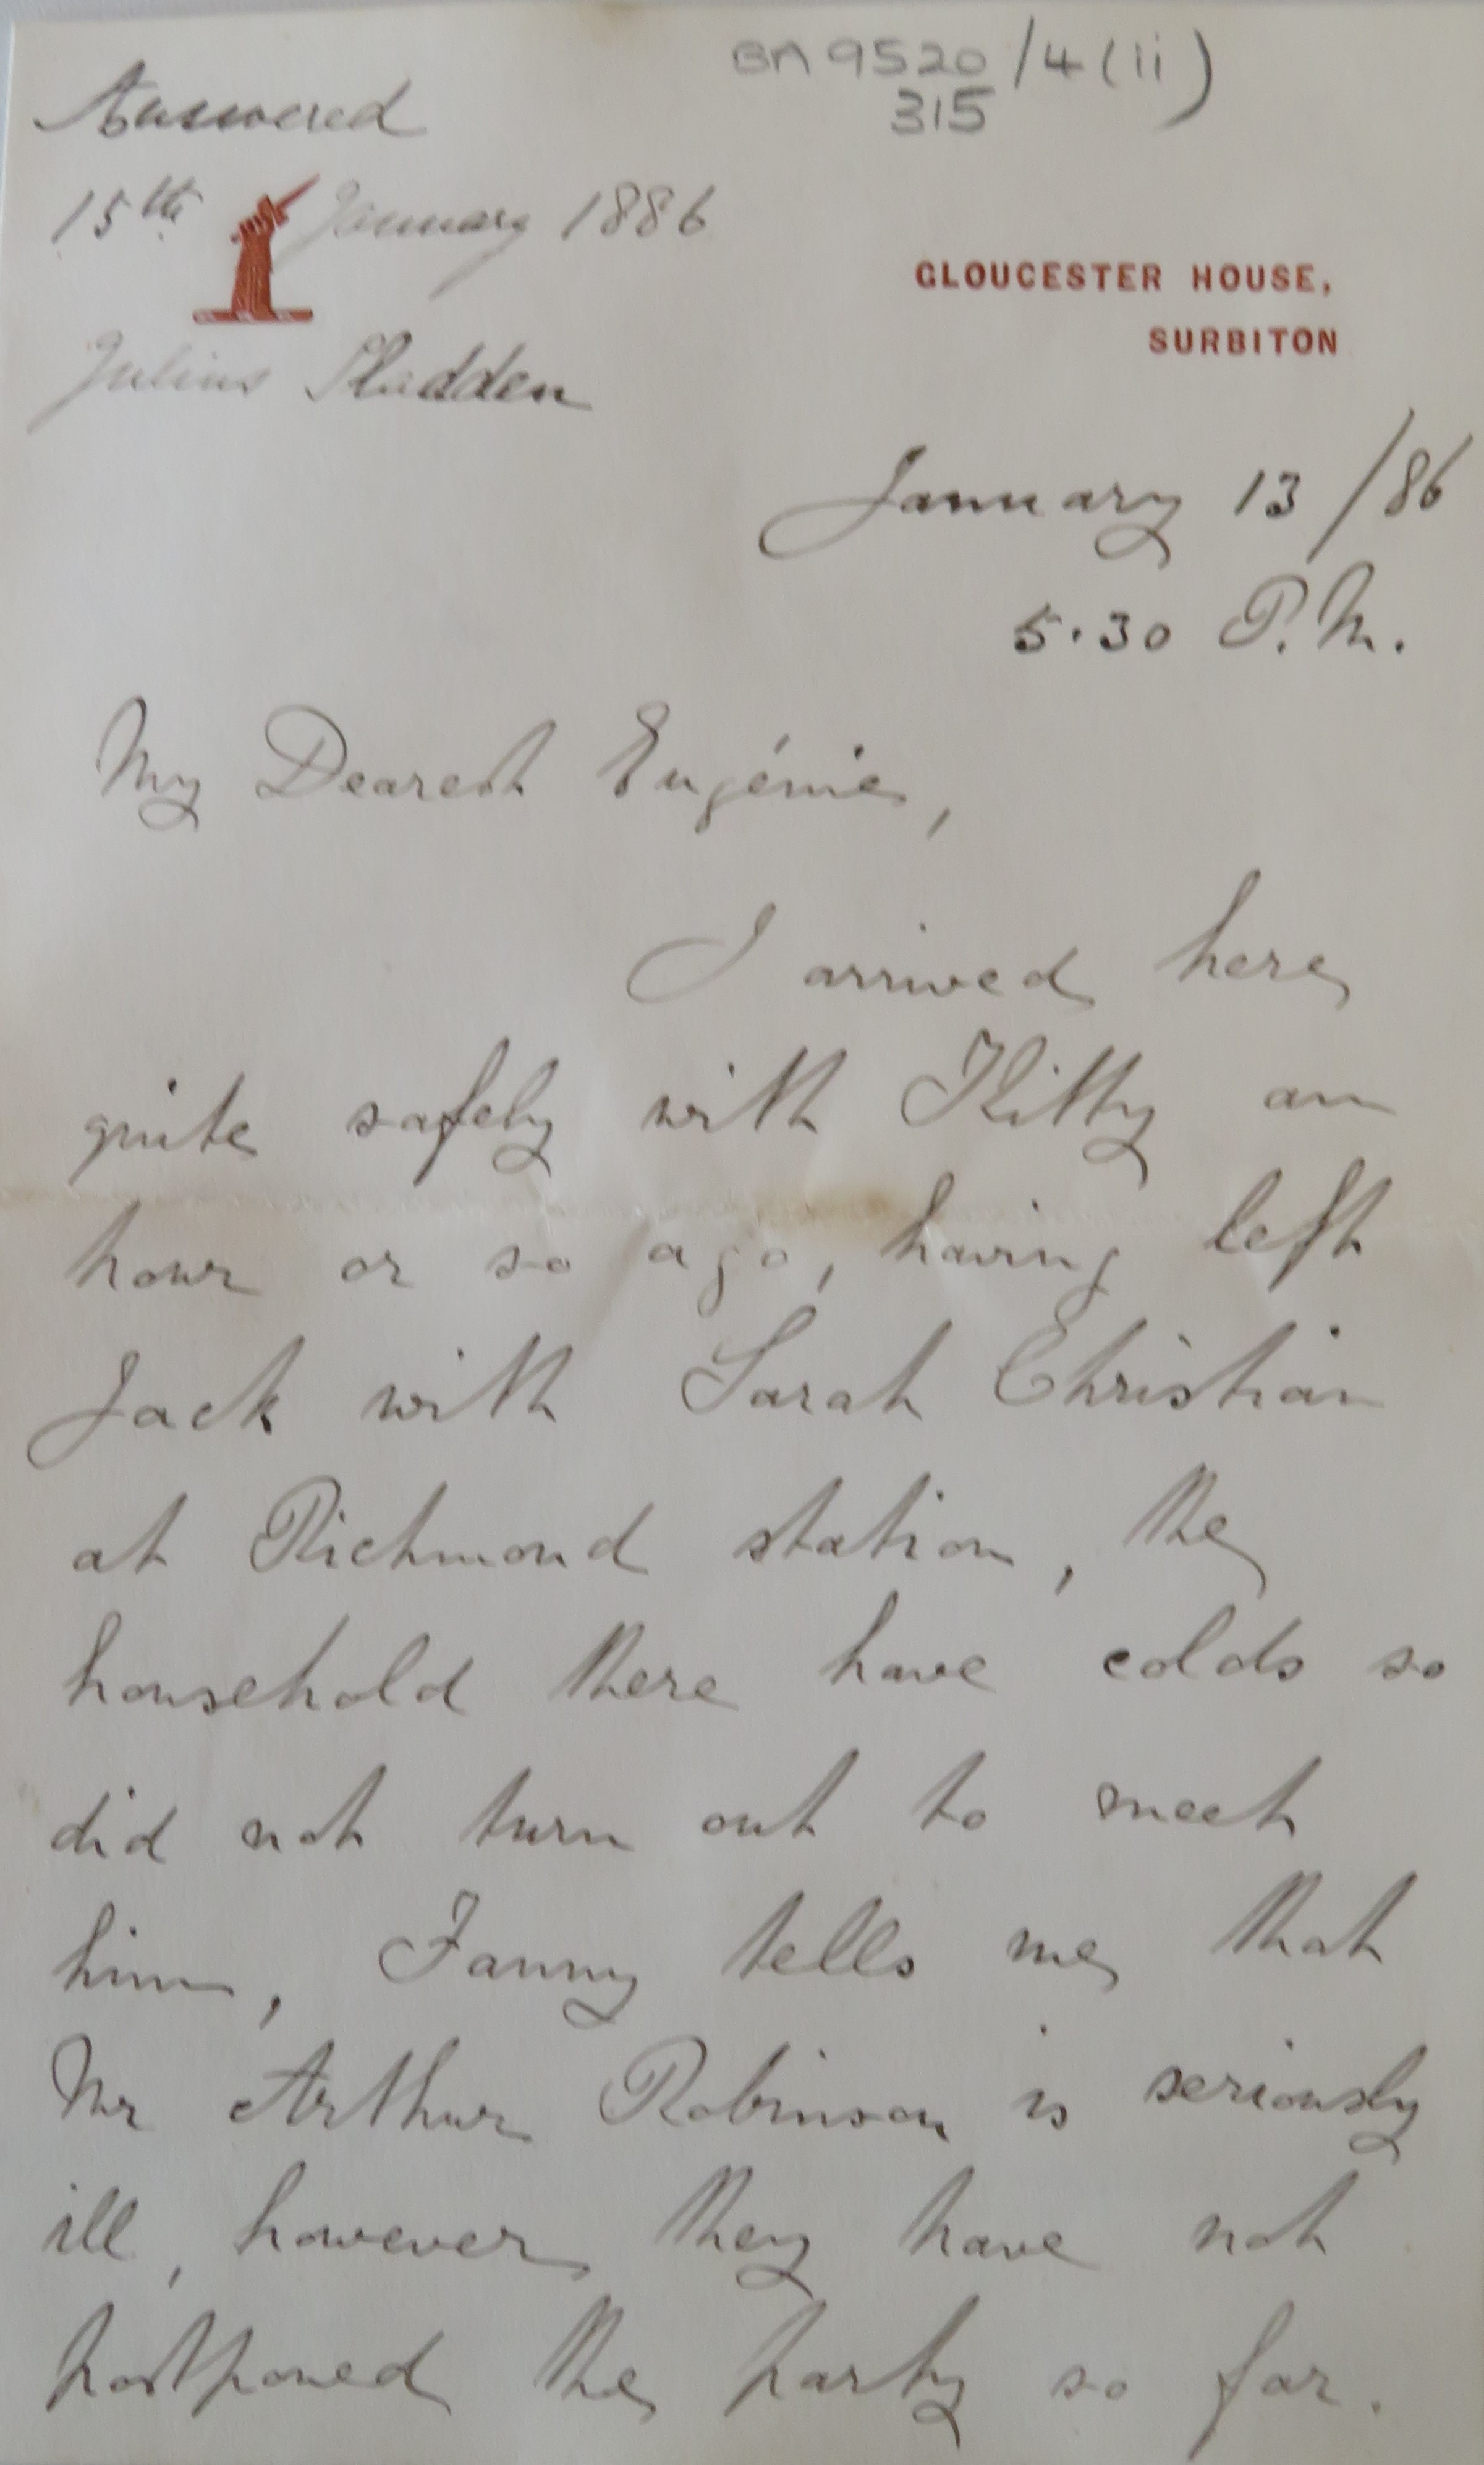 BA 9520/4(ii)
315
Answered
15th January 1886
Julius Sladden
GLOUCESTER HOUSE,
SURBITON
January 13/86
5.30 P.M.
My Dearest Eugénie,
I arrived here
quite safely with Kitty an
hour or so ago, having left
Jack with Sarah Christian
at Richmond station, the
household there have colds so
did not turn out to meet
him, Fanny tells me that
Mr Arthur Robinson is seriously
ill, however they have not
postponed the party so far.